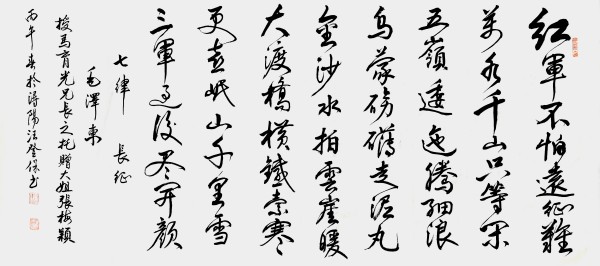 红軍不怕遠征難
萬水千山只等闲
五嶺逶迤騰细浪
烏蒙磅礴走泥丸
金沙水拍雲崖暖
大渡橋橫鐵索寒
更喜岷山千里雪
三軍过後尽开颜
七律 长征
毛澤東
按馬育光兄長之托贈大姐張梅穎
丙午 於潯陽 登保书